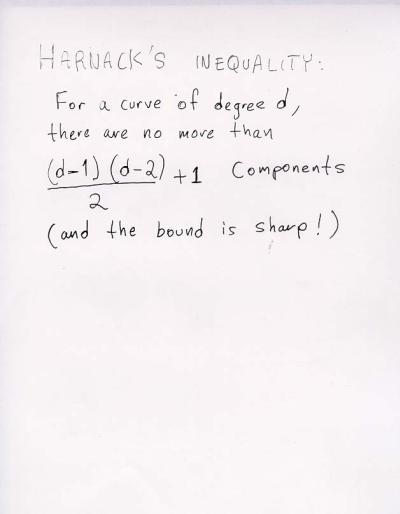 HARNACK'S INEQUALITY:
For a curve of degree d,
there are no more than
(d-1)(d-2)/2 + 1 Components
(and the bound is sharp!)